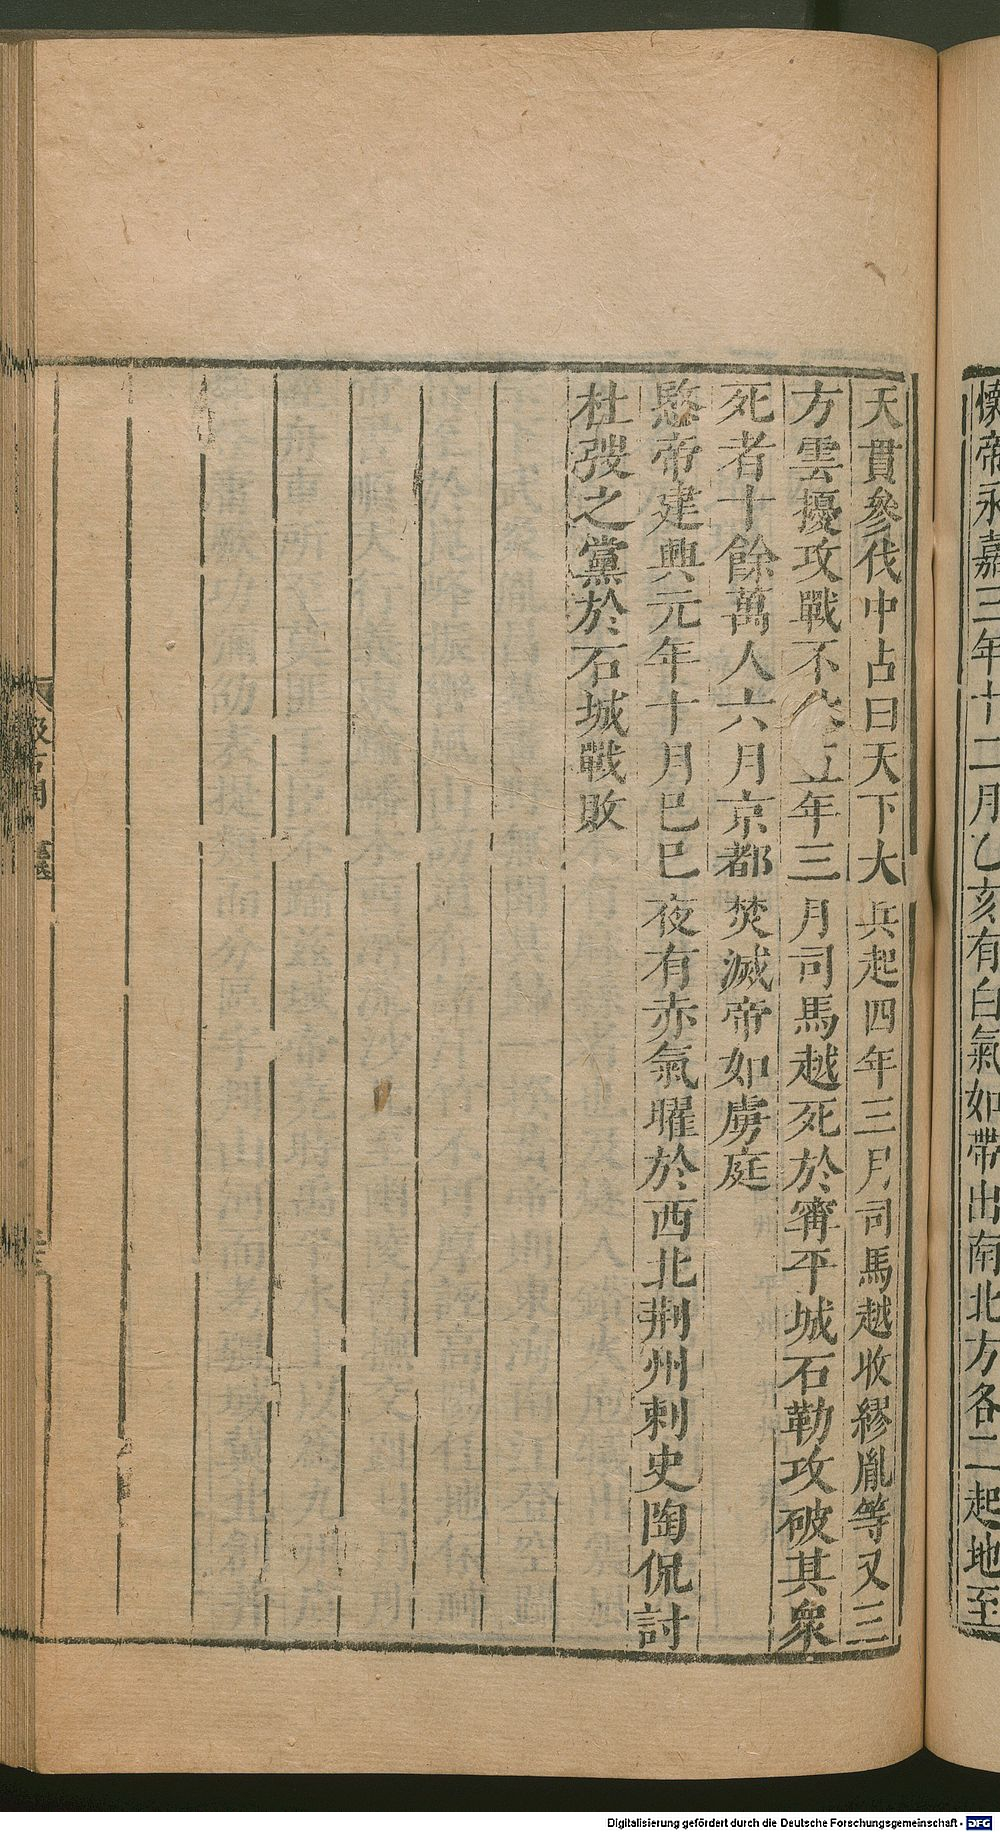 懷帝永嘉三年十二月乙亥有白氣如帶出南北方各二起地至
天貫參伐中占曰天下大兵起四年三月司馬越收繆胤等又三
方雲擾攻戰不 五年三月司馬越死於甯平城石勒攻破其衆
死者十餘萬人六月京都焚滅帝如虜庭
愍帝建興元年十月巳巳夜有赤氣曜於西北荆州刺史陶侃討
杜弢之黨於石城戰敗
Digitalisierung gefördert durch die Deutsche Forschungsgemeinschaft - DFG